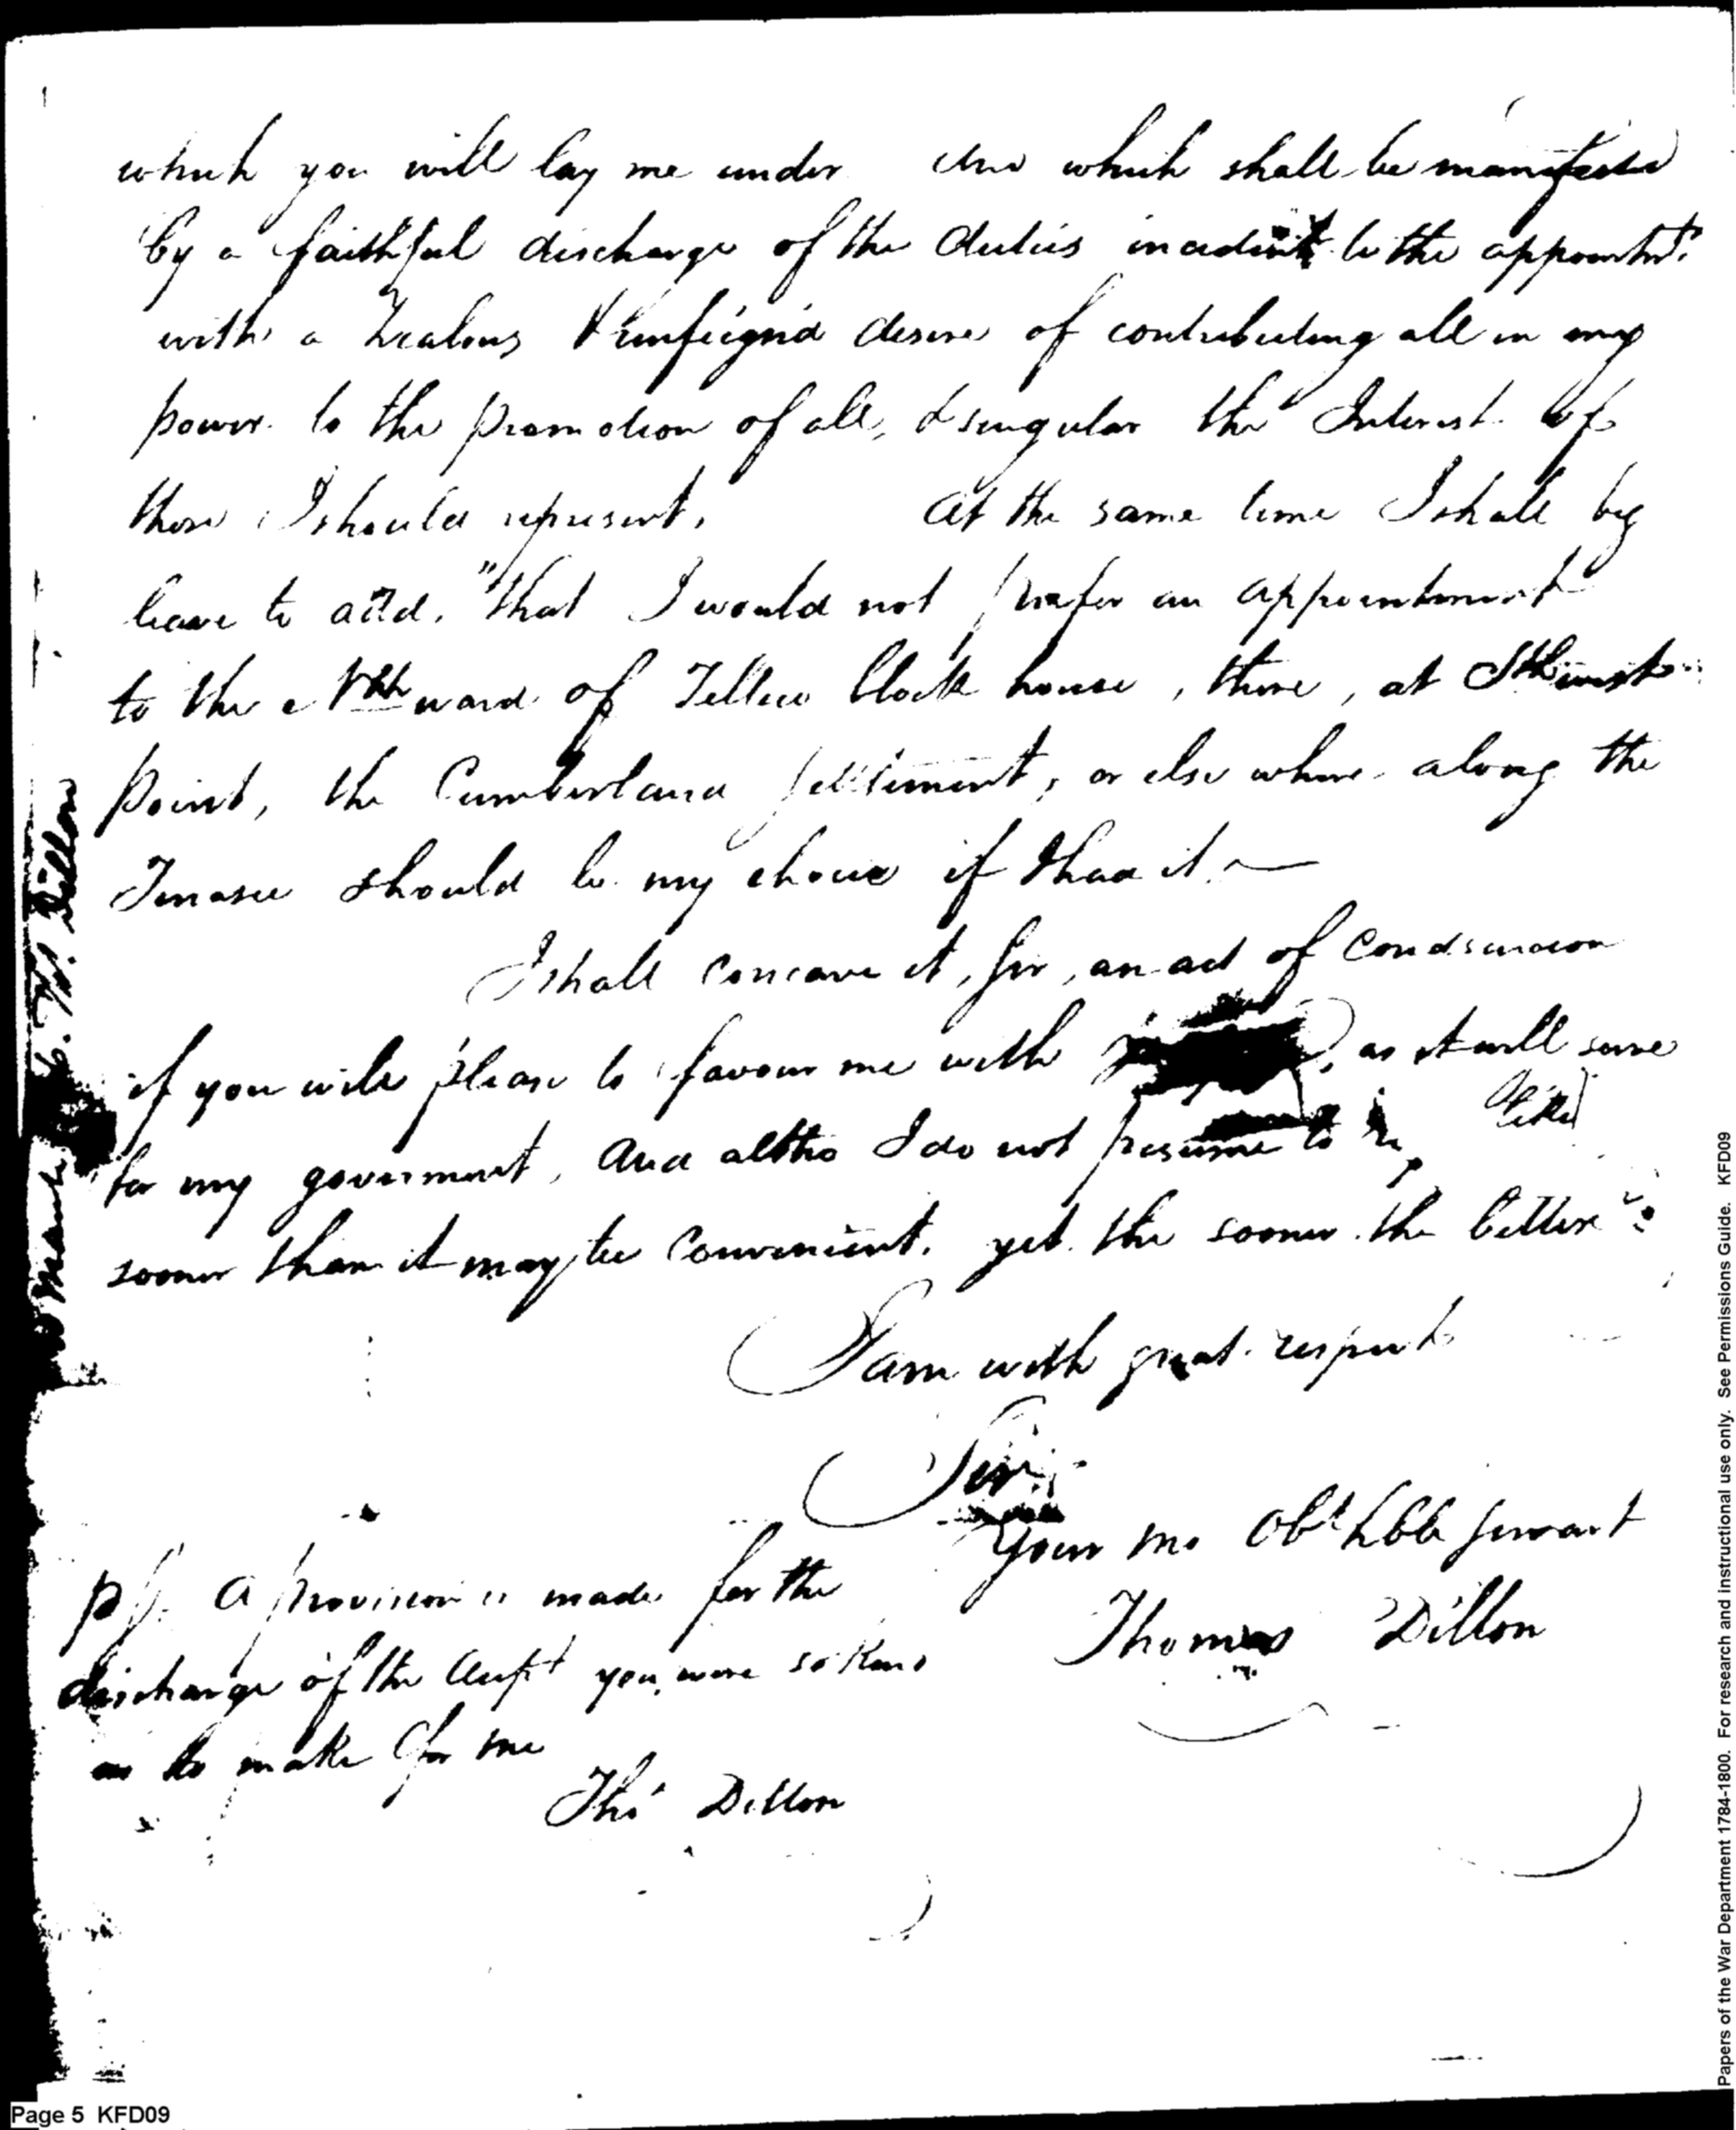 which you will lay me under and which shall be manifested
by a faithful discharge of the duties incident to the appointmt.
with a Zealous & unfeign'd desire of contributing all in my
power to the promotion of all, & singular the Interest of
those I should represent. At the same time I shall beg
leave to add, "that I would not prefer an appointment
to the Nthward of Tellico Block house, there, at SthWest
point, the Cumberland settlement, or else where along the
Tenasee should be my choice if I had it.—
I shall conceave it, Sir, an act of
if you will please to favour me with , as it will serve
for my goverment, and altho I do not presume to
sooner than it may be convenient, yet the sooner the better
I am with great respect
Sir,
Your mo Obt. Hble Servant
Thomas Dillon
PS. A provision is made for the
discharge of the you were so kind
as to make for me
Thos Dillon
Th. Dillon
Page 5 KFD09
Papers of the War Department 1784-1800. For research and instructional use only. See Permissions Guide. KFD09